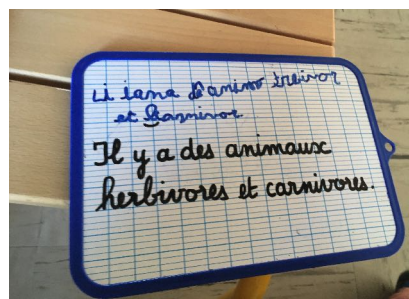 Li iana d'animo treivor
et karnivor
Il y a des animaux
herbivores et carnivores.